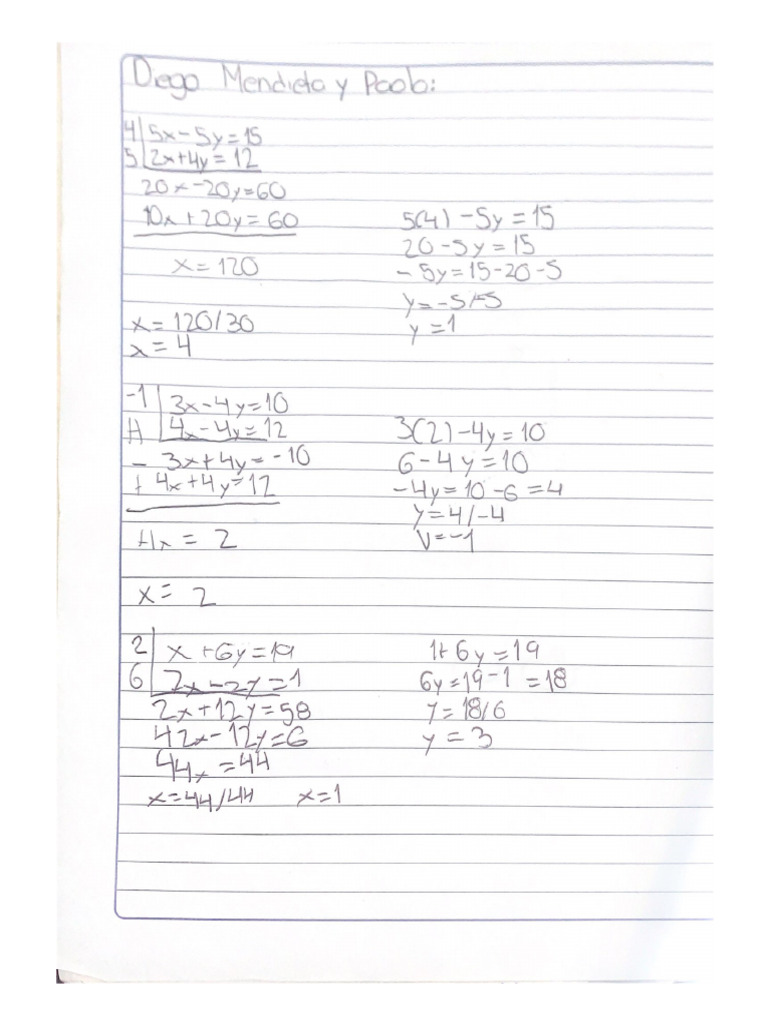 Diego Mendieta y Paola:
4 | 5x-5y=15
5 | 2x+4y=12
20x-20y=60
10x+20y=60
x=120
x=120/30
x=4
5(4)-5y=15
20-5y=15
-5y=15-20-5
y=-5/-5
y=1
-1 | 3x-4y=10
+1 | 4x-4y=12
-3x+4y=-10
+4x+4y=12
+1x=2
x=2
3(2)-4y=10
6-4y=10
-4y=10-6=4
y=4/-4
y=-1
2 | x+6y=19
6 | 7x-2y=1
2x+12y=58
42x-12y=6
44x=44
x=44/44 x=1
1+6y=19
6y=19-1=18
y=18/6
y=3